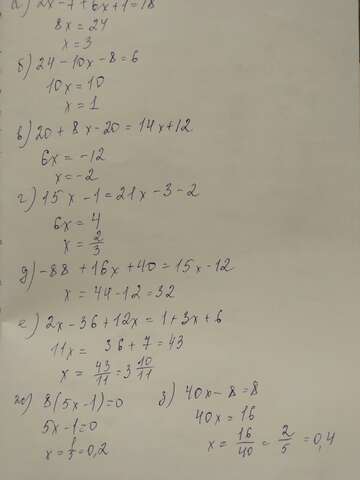 а) 2x - 7 + 6x + 1 = 18
8x = 24
x = 3
б) 24 - 10x - 8 = 6
10x = 10
x = 1
в) 20 + 8x - 20 = 14x + 12
6x = -12
x = -2
г) 15x - 1 = 21x - 3 - 2
6x = 4
x = 2/3
д) -88 + 16x + 40 = 15x - 12
x = 44 - 12 = 32
е) 2x - 36 + 12x = 1 + 3x + 6
11x = 36 + 7 = 43
x = 43/11 = 3 10/11
ж) 8(5x - 1) = 0
5x - 1 = 0
x = 1/5 = 0,2
з) 40x - 8 = 8
40x = 16
x = 16/40 = 2/5 = 0,4